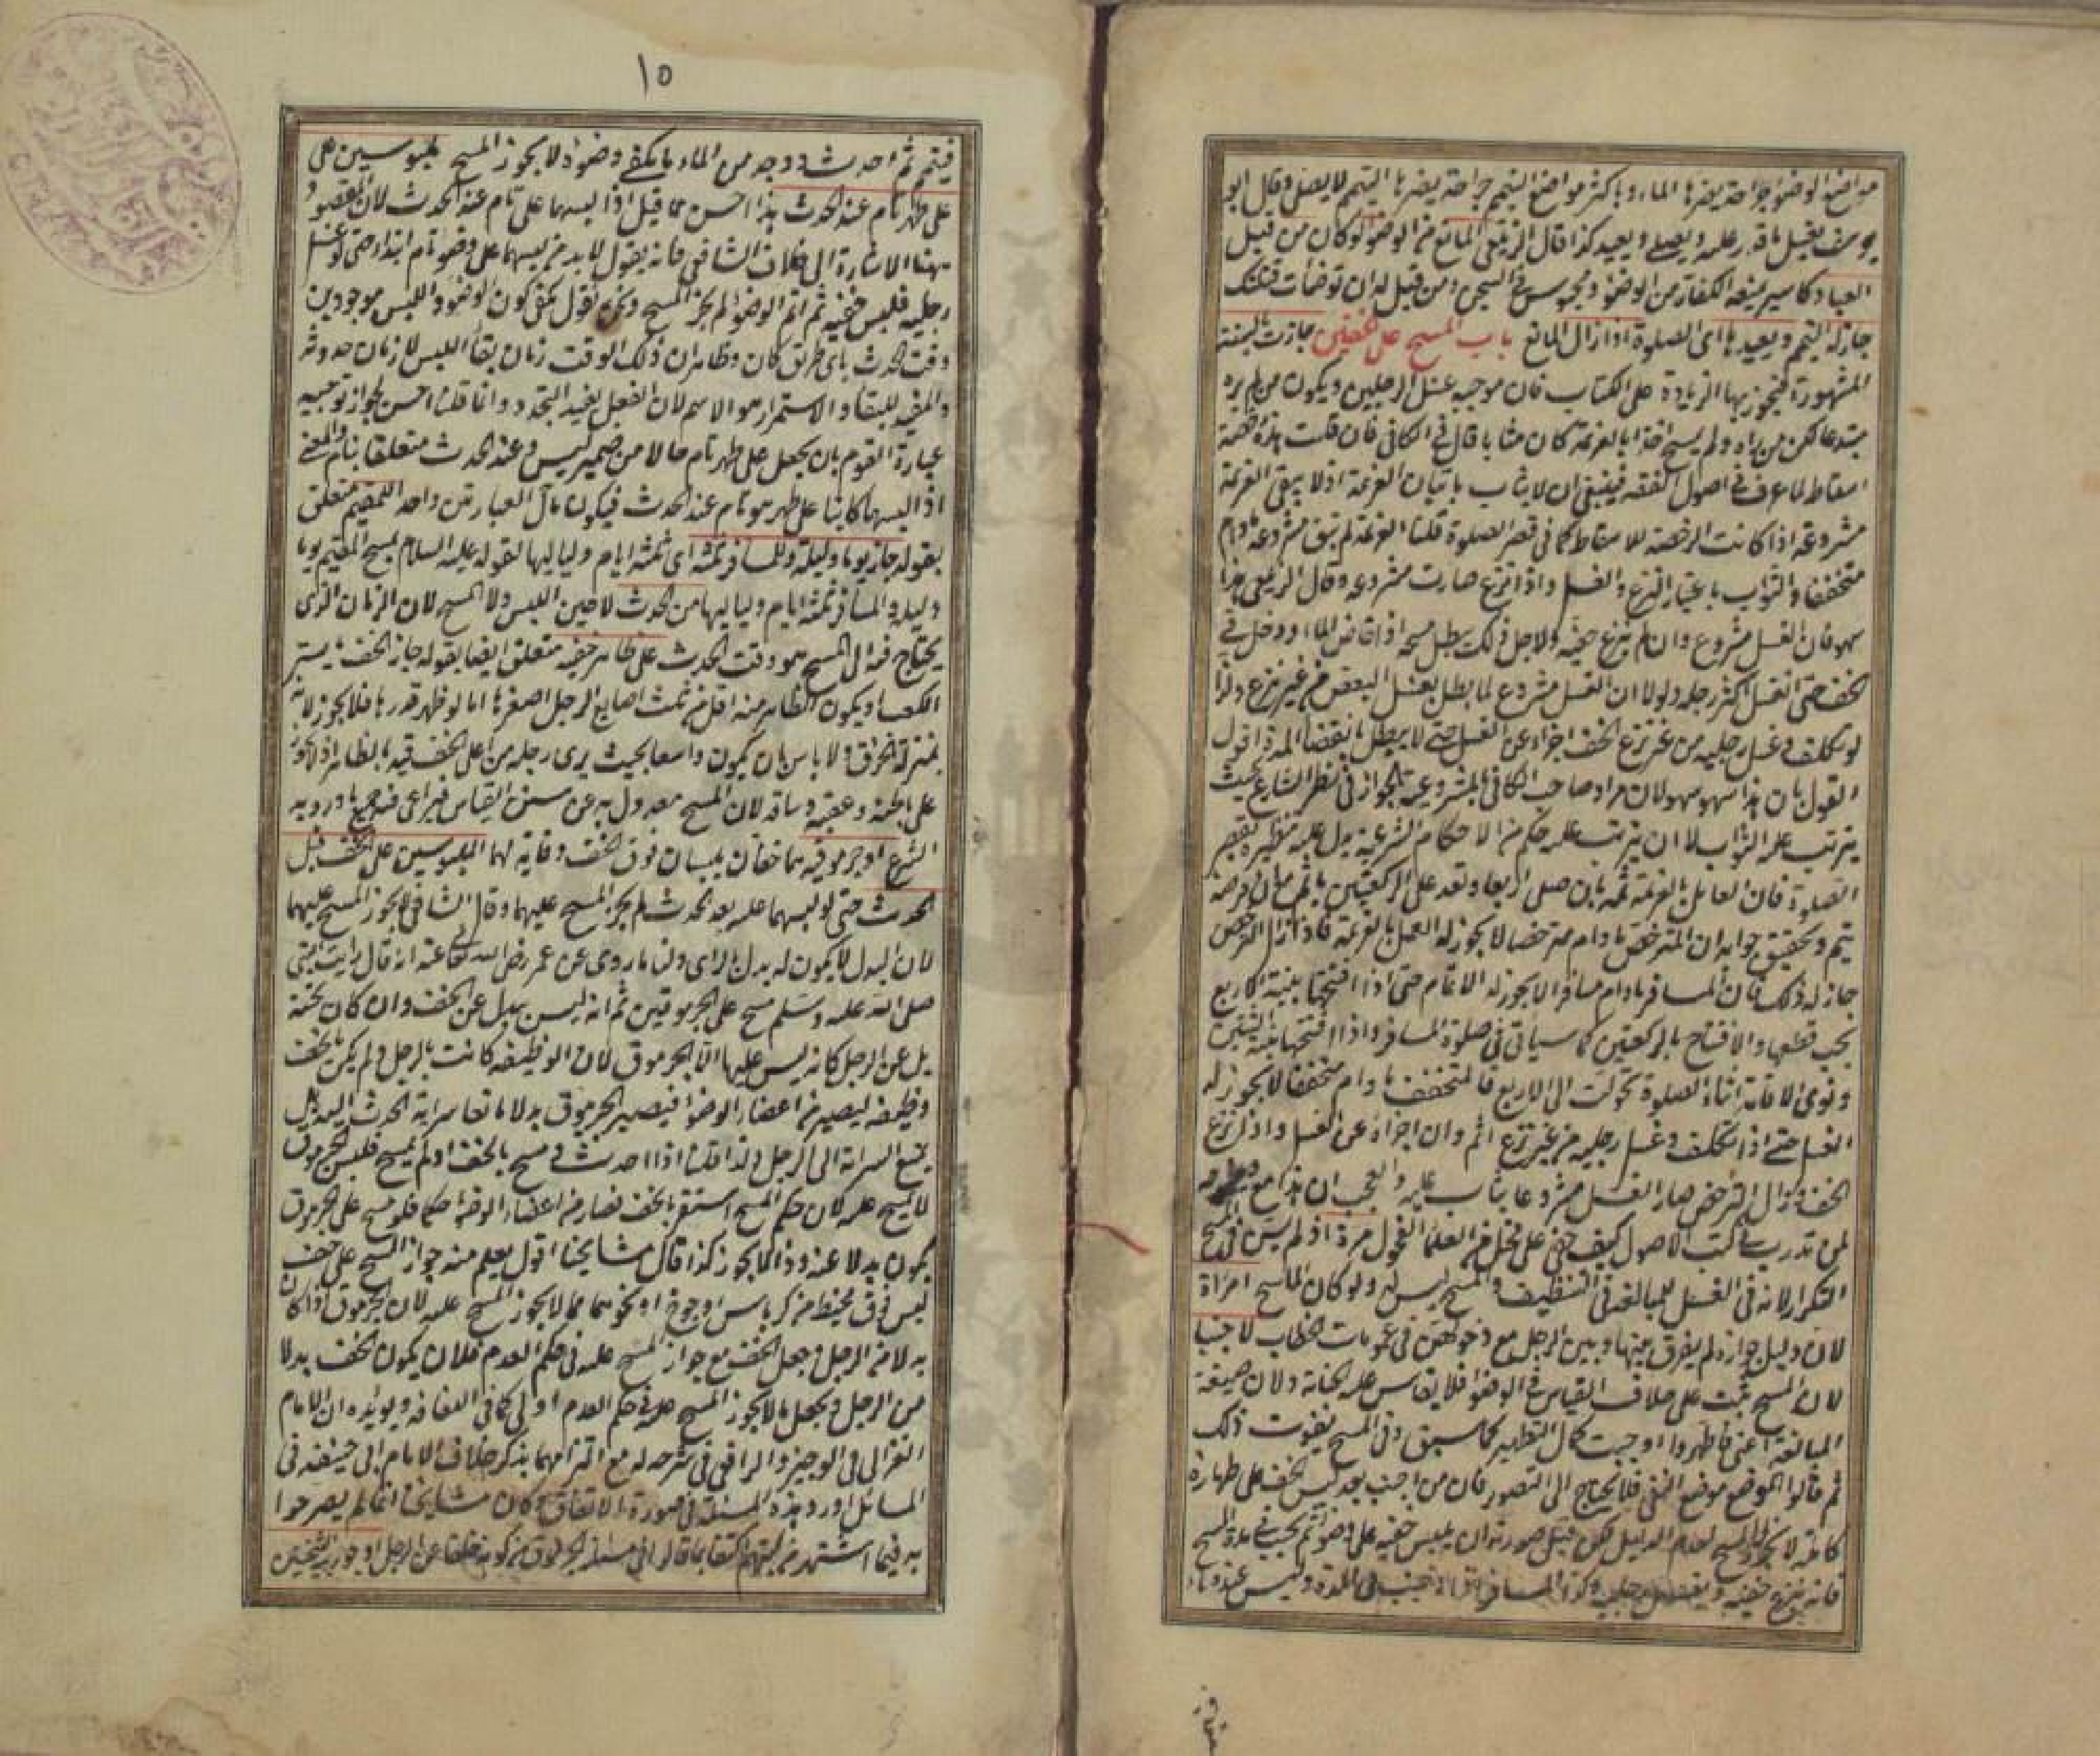 مواضع الوضوء جراحة يضرها الماء وباكثر مواضع التيمم جراحة يضرها التيمم لا يصلى وقال ابو
يوسف يغسل ما قدر عليه ويصلى ويعيد كذا قال الزيلعى المانع من الوضوء لو كان من قبل
العباد كاسير يمنعه الكفار من الوضوء ومحبوس فى السجن ومن قيل له ان توضأت قتلتك
جاز له التيمم ويعيدها اى الصلوة اذا زال المانع باب المسح على الخفين جازت بالسنة
المشهورة فيجوز بها الزيادة على الكتاب فان موجبه غسل الرجلين ويكون من لم يره
مبتدعا لكن من راه ولم يمسح اخذا بالعزيمة كان مثابا قال فى الكافى فان قلت هذه رخصة
اسقاط لما عرف فى اصول الفقه فينبغى ان لا يثاب باتيان العزيمة اذ لا يبقى العزيمة
مشروعة اذا كانت الرخصة للاسقاط كما فى قصر الصلوة قلنا العزيمة لم تبق مشروعة مادام
متخففا والثواب باعتبار النزع والغسل واذا نزع صارت مشروعة وقال الزيلعى هذا
سهو فان الغسل مشروع وان لم ينزع خفيه ولاجل ذلك يبطل مسحه اذا خاض الماء ودخل فى
الخف حتى انغسل اكثر رجله ولولا ان الغسل مشروع لما بطل بغسل البعض من غير نزع وكذا
لو تكلف وغسل رجليه من غير نزع الخف اجزاه عن الغسل حتى لا يبطل بانقضاء المدة اقول
القول بان هذا سهو سهو لان مراد صاحب الكافى بالمشروعية الجواز فى نظر الشارع بحيث
يترتب عليه الثواب لا ان يترتب عليه حكم من الاحكام الشرعية يدل عليه تنظيره بقصر
الصلوة فان العامل بالعزيمة ثمه بان صلى اربعا وقعد على الركعتين ياثم مع ان فرضه
يتم وتحقيق جوابه ان المترخص مادام مترخصا لا يجوز له العمل بالعزيمة فاذا زال الترخص
جاز له ذلك فان المسافر مادام مسافرا لا يجوز له الاتمام حتى اذا افتتحها بنية الاربع
يجب قطعها والافتتاح بالركعتين كما سياتى فى صلوة المسافر واذا افتتحها بنية الثنتين
ونوى الاقامة اثناء الصلوة تحولت الى الاربع فالمتخفف مادام متخففا لا يجوز له
الغسل حتى اذا تكلف وغسل رجليه من غير نزع اثم وان اجزاه عن الغسل واذا نزع
الخف وزال الترخص صار الغسل مشروعا يثاب عليه والعجب ان هذا مع وضوحه
لمن تدرب فى كتب الاصول كيف خفى على فحل من العلماء الفحول مرة اذ لم يسن فى المسح
التكرار لانه فى الغسل للمبالغة فى التنظيف والمسح ليس له ولو كان الماسح امراة
لان دليل جوازه لم يفرق بينها وبين الرجل مع دخولهن فى عمومات الخطاب لا جنبا
لان المسح ثبت على خلاف القياس فى الوضوء فلا يقاس عليه الجنابة ولان صيغة
المبالغة اعنى فاطهروا اوجبت كمال التطهير كما سبق وفى المسح يفوت ذلك
ثم قالوا الموضع موضع النفى فلا يحتاج الى التصوير فان من اجنب بعد لبس الخف على طهارة
كاملة لا يجوز له المسح لعدم الدليل لكن قيل صورته ان يلبس خفيه على وضوء ثم يجنب فى مدة المسح
فانه ينزع خفيه ويغسل رجليه وكذا المسافر اذا اجنب فى المدة وليس عنده ماء
١٥
فيتيمم ثم احدث ووجد من الماء ما يكفى وضوءه لا يجوز المسح ملبوسين على
على طهر تام عند الحدث هذا احسن مما قيل اذا لبسهما على تام عند الحدث لان المقصود
ههنا الاشارة الى خلاف الشافعى فانه يقول لا بد من لبسهما على وضوء تام ابتداء حتى لو غسل
رجليه فلبس خفيه ثم اتم الوضوء لم يجز المسح ونحن نقول يكفى كون الوضوء واللبس موجودين
وقت الحدث باى طريق كان وظاهر ان ذلك الوقت زمان بقاء اللبس لا زمان حدوثه
والمفيد للبقاء والاستمرار هو الاسم لان الفعل يفيد التجدد وانما قلنا احسن لجواز توجيه
عبارة القوم بان يجعل على طهر تام حالا من ضمير لبس وعند الحدث متعلقا بتام والمعنى
اذا لبسهما كائنا على طهر هو تام عند الحدث فيكون مآل العبارتين واحدا للمقيم متعلق
بقوله جاز يوما وليلة وللمسافر ثلثه اى ثلثة ايام ولياليها لقوله عليه السلام يمسح المقيم يوما
وليلة والمسافر ثلثة ايام ولياليها من الحدث لا حين اللبس ولا المسح لان الزمان الذى
يحتاج فيه الى المسح هو وقت الحدث على ظاهر خفيه متعلق ايضا بقوله جاز الخف ما يستر
الكعب او يكون الظاهر منه اقل من ثلث اصابع الرجل اصغرها اما لو ظهر قدرها فلا يجوز لانه
بمنزلة الخرق ولا باس بان يكون واسعا بحيث يرى رجله من اعلى الخف قيد بالظاهر اذ لا يجوز
على باطنه وعقبه وساقه لان المسح معدول به عن سنن القياس فيراعى فيه جميع ما ورد به
الشرع او جرموقيه هما خفان يلبسان فوق الخف وقاية لهما الملبوسين على الخف قبل
الحدث حتى لو لبسهما عليه بعد الحدث لم يجز المسح عليهما وقال الشافعى لا يجوز المسح عليهما
لان البدل لا يكون له بدل بالراى ولنا ما روى عن عمر رضى الله تعالى عنه انه قال رايت النبى
صلى الله عليه وسلم مسح على الجرموقين ثم انه ليس ببدل عن الخف وان كان تحته
بل عن الرجل كانه ليس عليها الا الجرموق لان الوظيفة كانت بالرجل ولم يكن بالخف
وظيفة ليصير من اعضاء الوضوء فيصير الجرموق بدلا مانعا سراية الحدث اليه بل
يمنع السراية الى الرجل ولذا قلنا اذا احدث ومسح بالخف او لم يمسح فلبس الجرموق
لا يمسح عليه لان حكم المسح استقر بالخف فصار من اعضاء الوضوء حكما فلو مسح على الجرموق
يكون بدلا عنه وذا لا يجوز كذا قال مشايخنا اقول يعلم منه جواز المسح على خف
لبس فوق مخيط من كرباس او جوخ او نحوهما مما لا يجوز المسح عليه لان الجرموق اذا كان
بدلا من الرجل وجعل الخف مع جواز المسح عليه فى حكم العدم فلان يكون الخف بدلا
من الرجل ويجعل ما لا يجوز المسح عليه فى حكم العدم اولى كما فى اللفافة ويؤيده ان الامام
الغزالى فى الوجيز والرافعى فى شرحه له مع التزامهما بذكر خلاف الامام ابى حنيفة فى
المسائل اوردا هذه المسئلة فى صورة الاتفاق وكان مشايخنا انما لم يصرحوا
به فيما اشتهر من كتبهم اكتفاء بما قالوا فى مسئلة الجرموق من كونه خلفا عن الرجل او جوربيه الثخينين